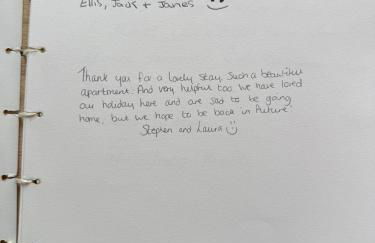 Ellis, Jack + James
Thank you for a lovely stay. Such a beautiful
apartment. And very helpful too. We have loved
our holiday here and are sad to be going
home, but we hope to be back in future.
Stephen and Laura